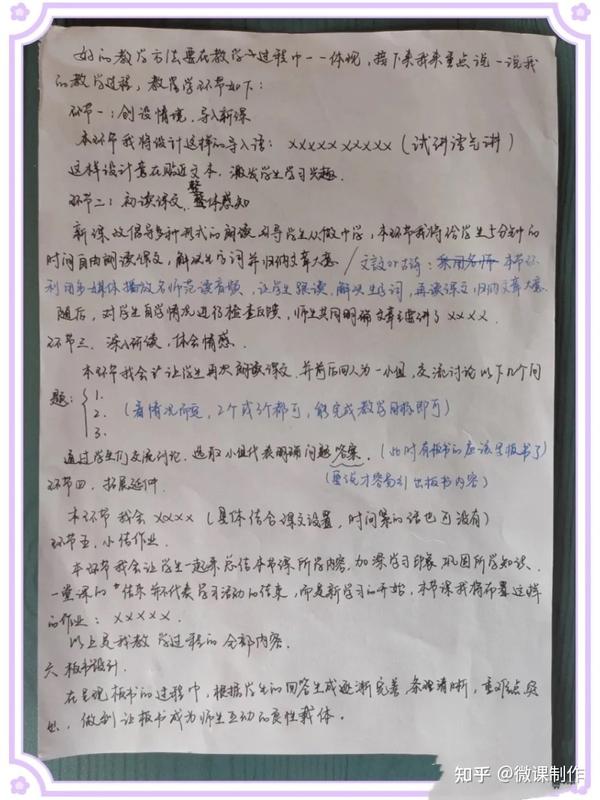 好的教学方法要在教学过程中一一体现，接下来我来重点说一说我
的教学过程，教学环节如下：
环节一：创设情境，导入新课
本环节我将设计这样的导入语：xxxxx xxxxx（试讲语气讲）
这样设计意在贴近文本，激发学生学习兴趣．
环节二：初读课文，整体感知
新课改倡导多种形式的朗读，引导学生从做中学，本环节我将给学生5分钟的
时间自由朗读课文，解决生字词并归纳文章大意／文言or古诗：本节
利用多媒体播放名师范读音频，让学生跟读，解决生字词，再读课文归纳文章大意
随后，对学生自学情况进行检查反馈，师生共同明确文章主要讲了xxxx．
环节三．深入研读，体会情感．
本环节我会让学生再次朗读课文．并前后四人为一小组，交流讨论以下几个问
题：1.
2.（看情况而定，2个或3个都可，能完成教学目标即可）
3.
通过学生们交流讨论．选取小组代表明确问题答案．（此时有板书的应该出板书了）
（要说才容易引出板书内容）
环节四．拓展延伸．
本环节我会xxxx（具体结合课文设置，时间紧的话也可没有）
环节五．小结作业．
本环节我会让学生一起来总结本节课所学内容．加深学习印象 巩固所学知识．
一堂课的结束并不代表学习活动的结束，而是新学习的开始．本节课我将布置这样
的作业：xxxxx．
以上是我教学过程的全部内容．
六 板书设计．
在呈现板书的过程中，根据学生的回答生成逐渐完善 条理清晰，重难点突
出．做到让板书成为师生互动的良性载体．
知乎 @微课制作